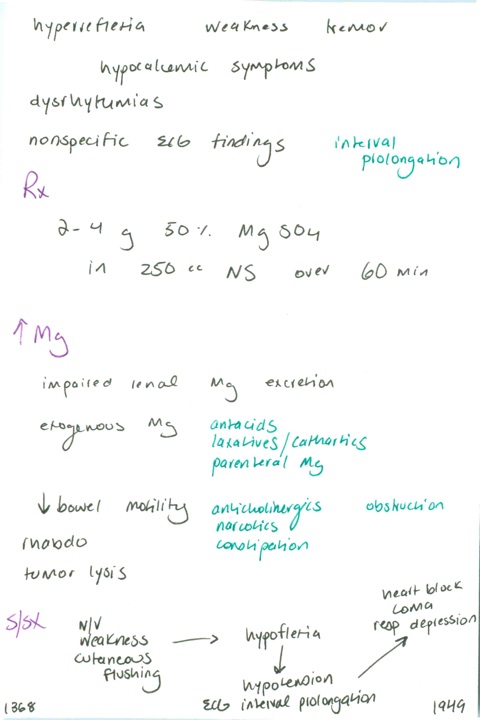 hyperreflexia weakness tremor
hypocalcemic symptoms
dysrhytumias
nonspecific ECG findings interval prolongation
Rx
2-4 g 50% MgSO4
in 250 cc NS over 60 min
↑ Mg
impaired renal Mg excretion
exogenous Mg antacids
laxatives/cathartics
parenteral Mg
↓ bowel motility anticholinergics obstruction
narcotics
rhabdo constipation
tumor lysis
S/Sx N/V
weakness
cutaneous
flushing
→ hyporeflexia
↓
hypotension
ECG interval prolongation
heart block
coma
resp depression
1368 1949